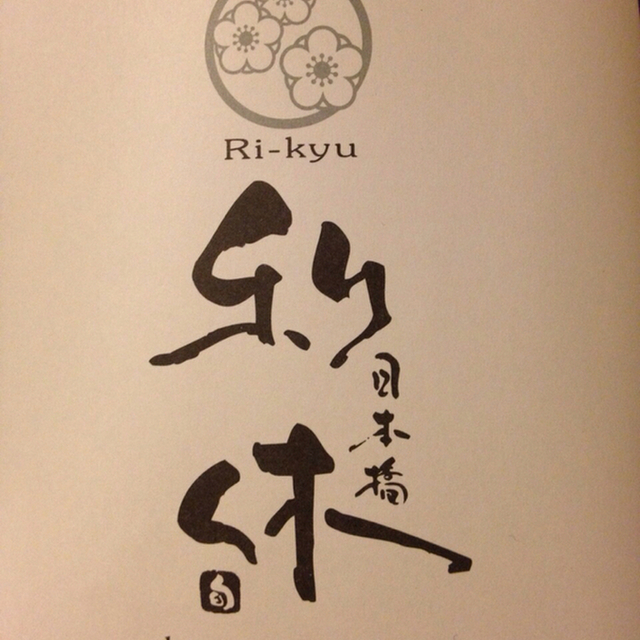 Ri-kyu
利休
日本橋
旬